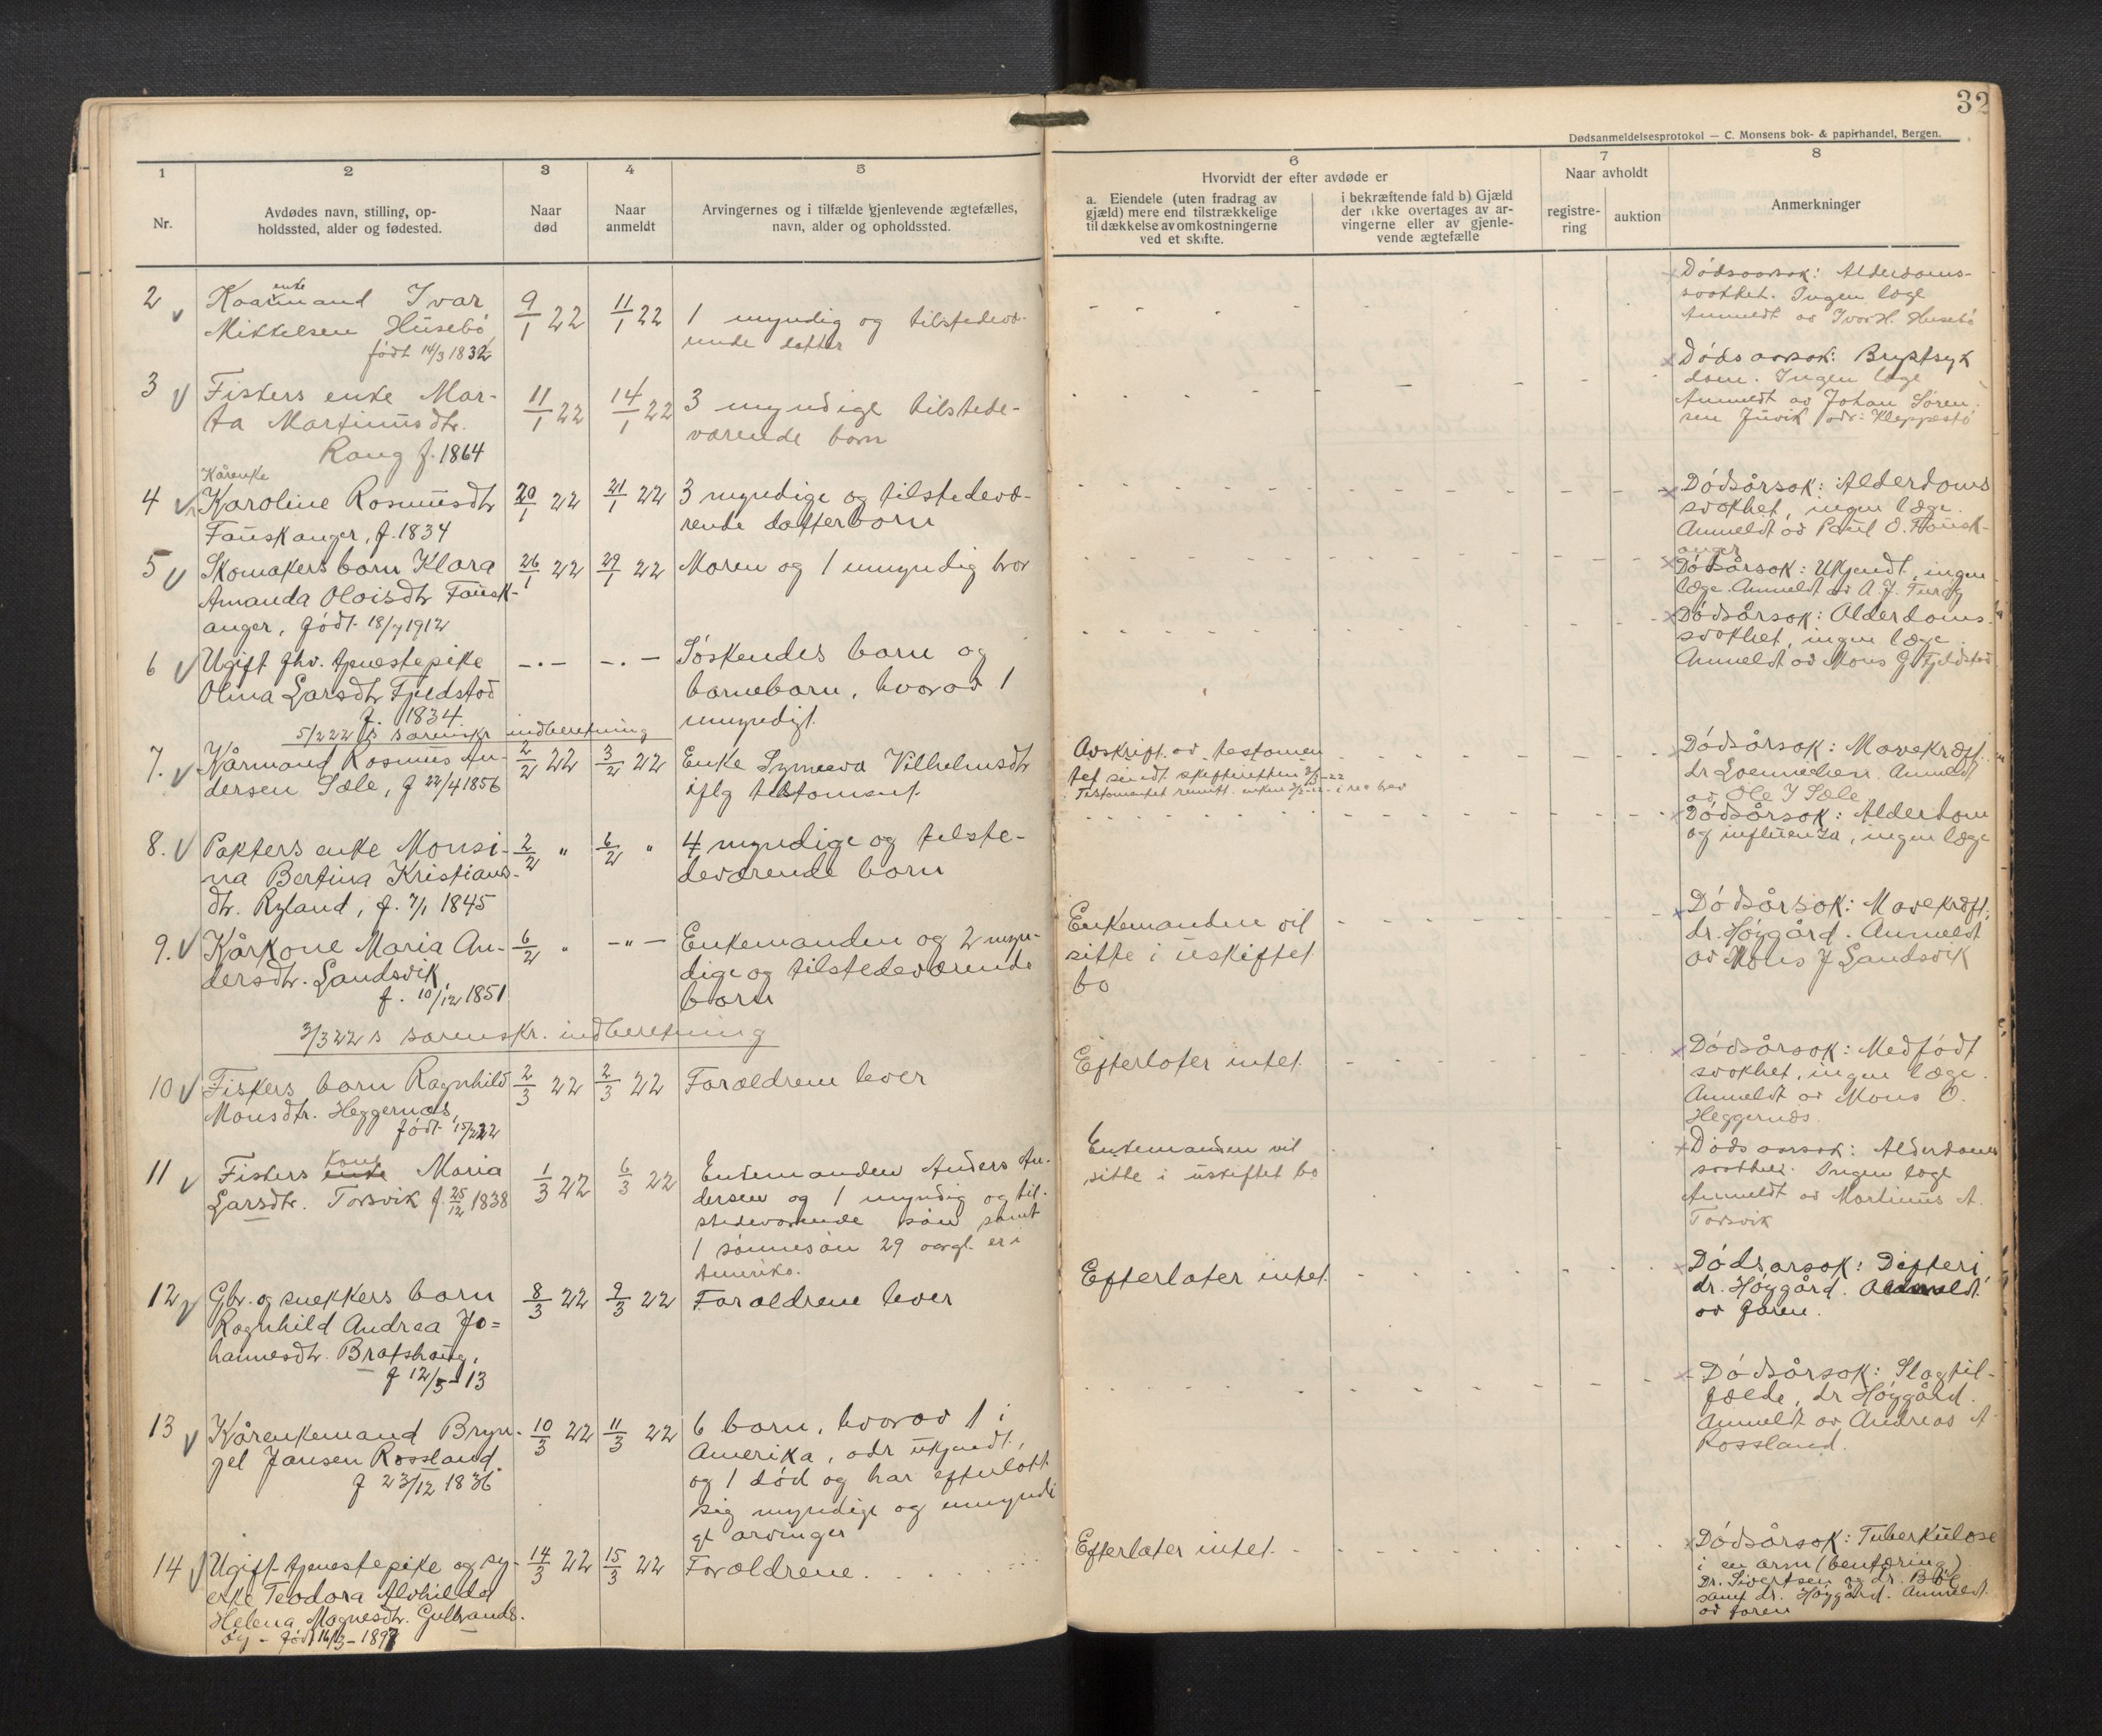 32
Dødsanmeldelsesprotokol — C. Monsens bok- & papirhandel, Bergen.
1
Nr.
2
Avdødes navn, stilling, op-
holdssted, alder og fødested.
3
Naar
død
4
Naar
anmeldt
5
Arvingernes og i tilfælde gjenlevende ægtefælles,
navn, alder og opholdssted.
6
Hvorvidt der efter avdøde er
a. Eiendele (uten fradrag av
gjæld) mere end tilstrækkelige
til dækkelse av omkostningerne
ved et skifte.
i bekræftende fald b) Gjæld
der ikke overtages av ar-
vingerne eller av gjenle-
vende ægtefælle
7
Naar avholdt
registre-
ring
auktion
8
Anmerkninger
2
enke
Kaarmand Ivar
Mikkelsen Husebö
født 14/3 1832
9/1 22
11/1 22
1 myndig og tilstedevæ-
rende datter
Dödsaarsak: Alderdoms-
svakhet. Ingen læge
Anmeldt av Ivar H. Husebö
3
Fiskers enke Mar-
ta Martinusdtr.
Rong f. 1864
11/1 22
14/1 22
3 myndige tilstede-
værende barn
Dödsaarsak: Brystsyk
dom. Ingen læge
Anmeldt av Johan Sören
sen Juvik adr: Kleppestö
4
Kårenke
Karoline Rasmusdtr
Fauskanger, f. 1834
20/1 22
21/1 22
3 myndige og tilstedevæ-
rende datterbarn
Dödsårsak: Alderdoms
svakhet, ingen læge.
Anmeldt av Paul O. Fausk-
anger
5
Skomakers barn Klara
Amanda Olaisdtr Fausk-
anger, født 18/7 1912
26/1 22
29/1 22
Moren og 1 umyndig bror
Dödsårsak: Ukjendt, ingen
læge. Anmeldt av A. J.
6
Ugift fhv. tjenestepike
Olina Larsdtr Fjeldstad
f. 1834.
—.—
—.—
Söskendes barn og
barnebarn, hvorav 1
umyndigt.
Dödsårsak: Alderdoms
svakhet, ingen læge.
Anmeldt av Mons G. Fjeldstad
5/2 22 s sorenskr indberetning
7.
Kårmand Rasmus An-
dersen Sæle, f 22/4 1856
2/2 22
3/2 22
Enke Synneva Vilhelmsdtr
iflg testament.
Avskrift av testamen
tet sendt skifteretten
Dödsårsak: Mavekræft.
dr Loennechen. Anmeldt
av Ole J Sæle
8.
Pakters enke Monsi-
na Bertina Kristians-
dtr. Ryland, f. 7/1 1845
2/2 "
6/2 "
4 myndige og tilste-
deværende barn
Dödsårsak: Alderdom
og influensa, ingen læge
9.
Kårkone Maria An-
dersdtr. Landsvik,
f. 10/12 1851
6/2 "
—"—
Enkemanden og 2 myn-
dige og tilstedeværende
barn
Enkemanden vil
sitte i uskiftet
bo
Dödsårsak: Mavekræft,
dr. Höygård. Anmeldt
av Mons J Landsvik
3/3 22 s sorenskr. indberetning
10
Fiskers barn Ragnhild
Monsdtr. Heggernæs,
født 15/2 22
2/3 22
2/3 22
Forældrene lever
Efterlater intet.
Dödsårsak: Medfödt
svakhet, ingen læge.
Anmeldt av Mons O.
Heggernæs.
11
Fiskers enke kone Maria
Larsdtr. Torsvik f. 25/12 1838
1/3 22
6/3 22
Enkemanden Anders An-
dersen og 1 myndig og til-
stedeværende sön samt
1 sönnesön 29 aar gl. er i
Amerika.
Enkemanden vil
sitte i uskiftet bo
Döds aarsak: Alderdoms
svakhet. Ingen læge
Anmeldt av Martinus A.
Torsvik
12
Gbr. og snekkers barn
Ragnhild Andrea Jo=
hannesdtr. Bratshaug,
f 12/5-13
8/3 22
9/3 22
Forældrene lever
Efterlater intet.
Dödsårsak: Difteri
dr. Höygård. Anmeldt
av faren.
13
Kårenkemand Bryn-
jel Jansen Rossland.
f 23/12 1836
10/3 22
11/3 22
6 barn, hvorav 1 i
Amerika, adr ukjendt,
og 1 död og har efterlatt
sig myndige og umyndi
ge arvinger
Dödsårsak: Slagtil-
fælde, dr Höygård.
Anmeldt av Andreas A
Rossland.
14
Ugift tjenestepike og sy-
erske Teodora Alvhilda
Helena Magnesdtr. Gulbrands-
öy - født 16/3-1897
14/3 22
15/3 22
Forældrene.
Efterlater intet.
Dödsårsak: Tuberkulose
i en arm (bentæring)
Dr. Sivertsen og dr. Böe
samt dr. Höygård. Anmeldt
av faren